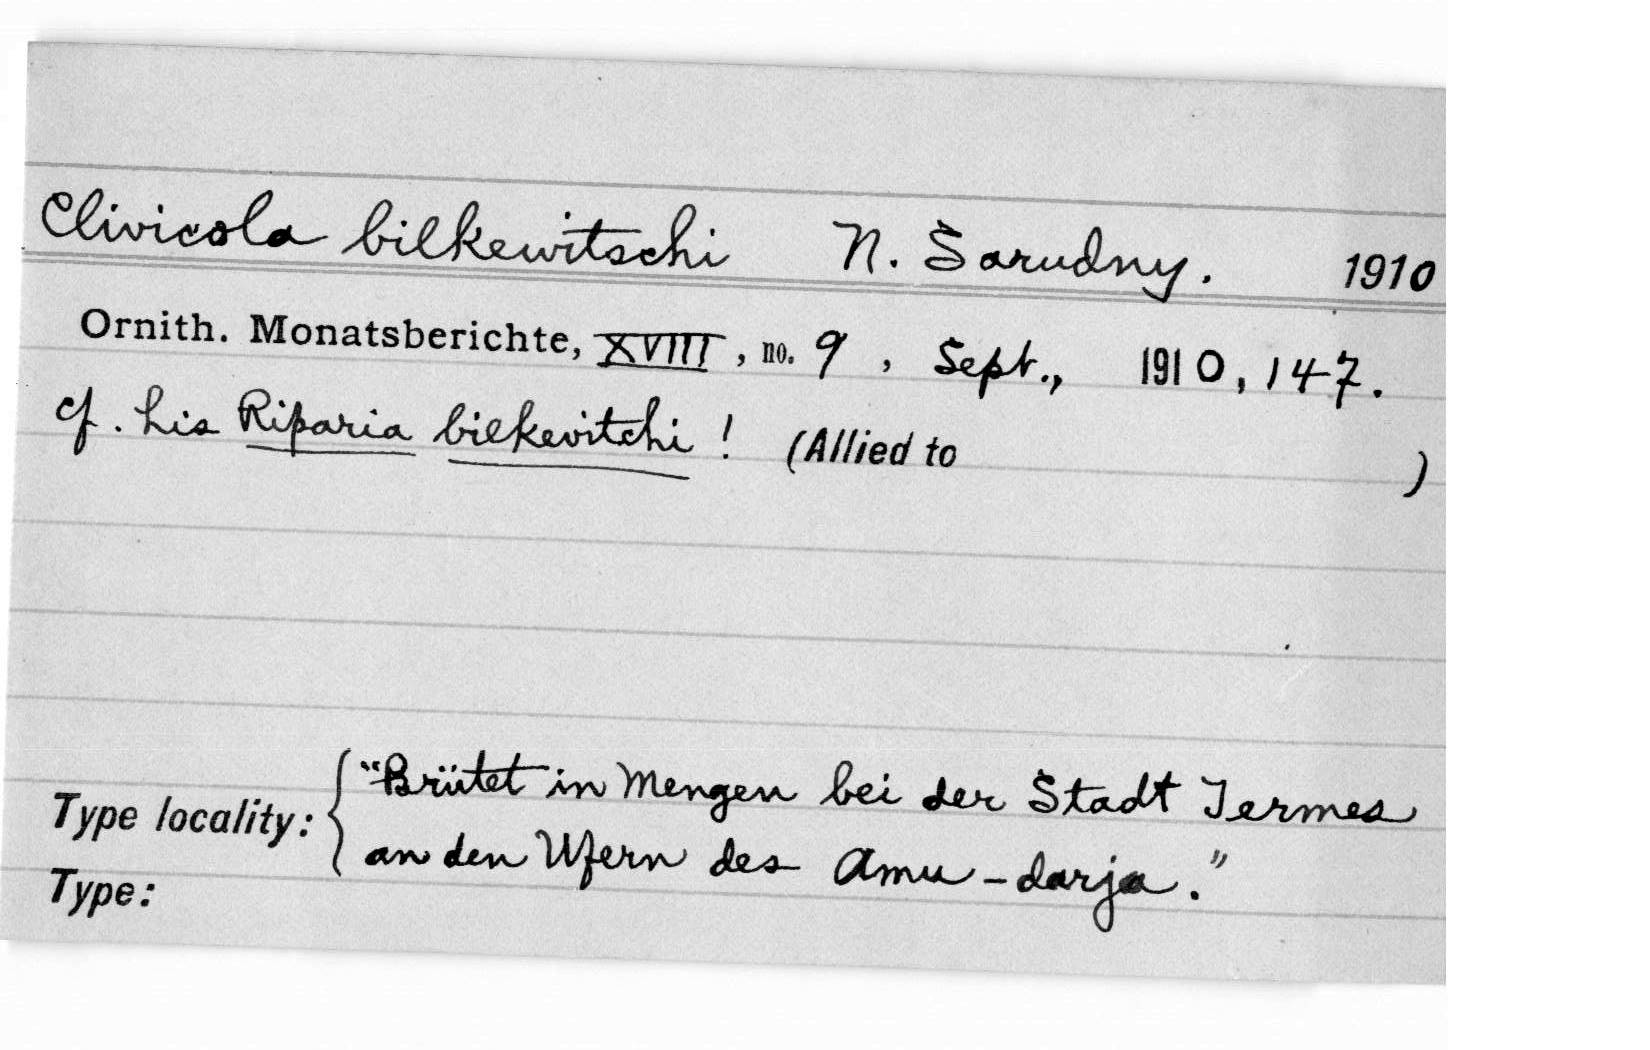 Clivicola bilkewitschi N. Šarudny. 1910
Ornith. Monatsberichte, XVIII, no. 9, Sept., 1910, 147.
cf. his Riparia bilkevitchi! (Allied to )
Type locality: { "Brütet in Mengen bei der Stadt Termes
an den Ufern des Amu-darja."
Type: